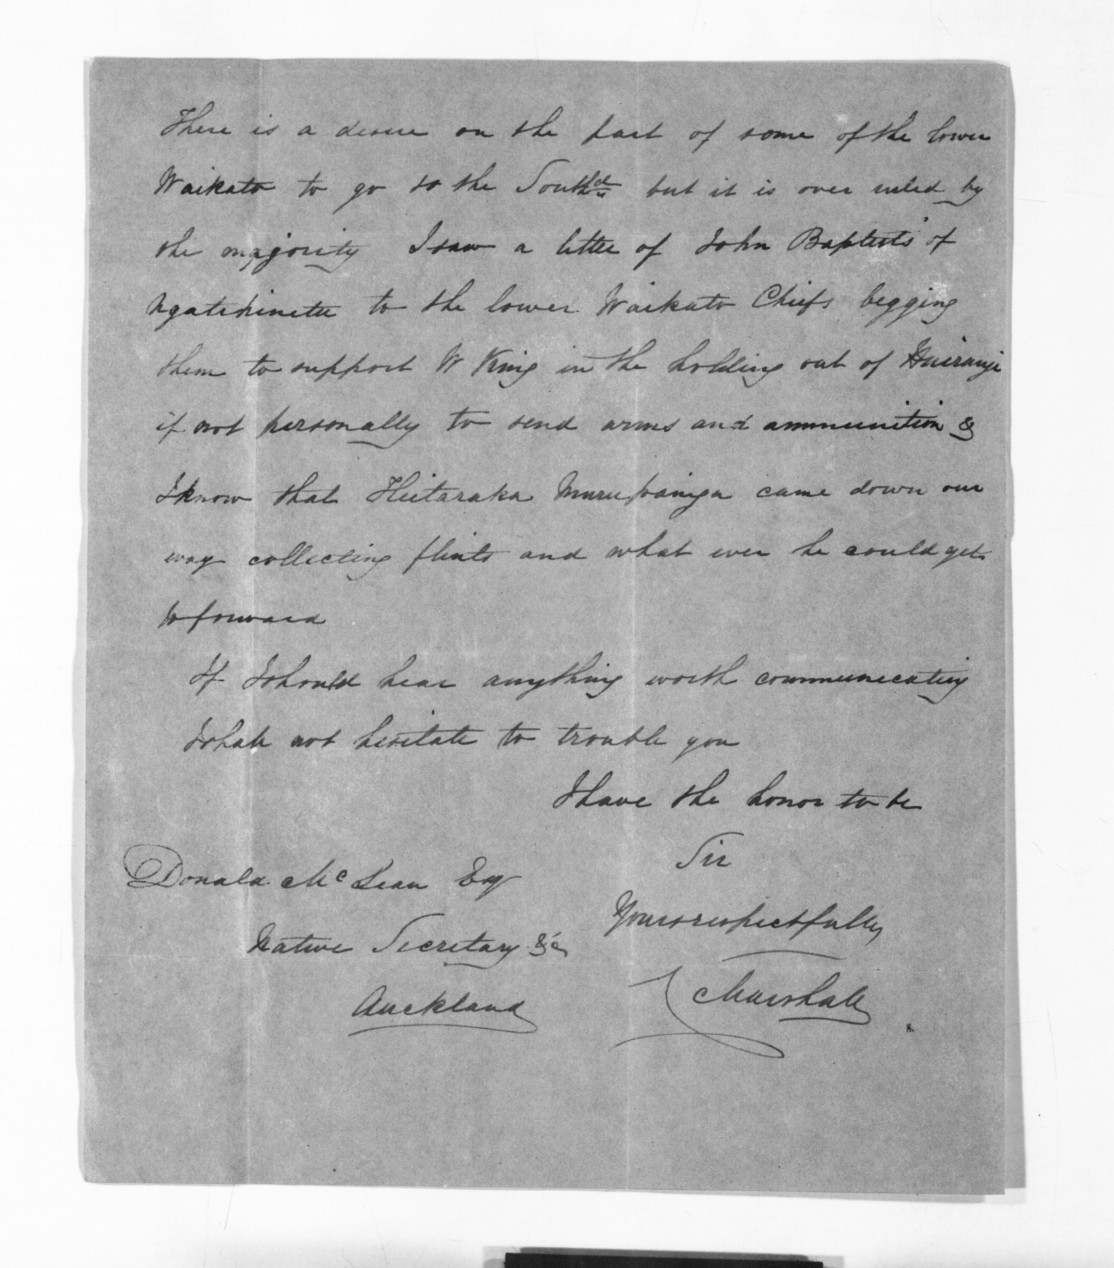 There is a desire on the part of some of the lower
Waikato to go to the Southd but it is over ruled by
the majority I saw a letter of John Baptists of
Ngatihinetu to the lower Waikato Chiefs begging
them to support W King in the holding out of Huirangi
if not personally to send arms and ammunition &
I know that Hetaraka Murupainga came down our
way collecting flints and what ever he could get
to forward
If I should hear anything worth communicating
I shall not hesitate to trouble you
I have the honor to be
Sir
Yours respectfully
Marshall
Donald McLean Esq
Native Secretary &c
Auckland